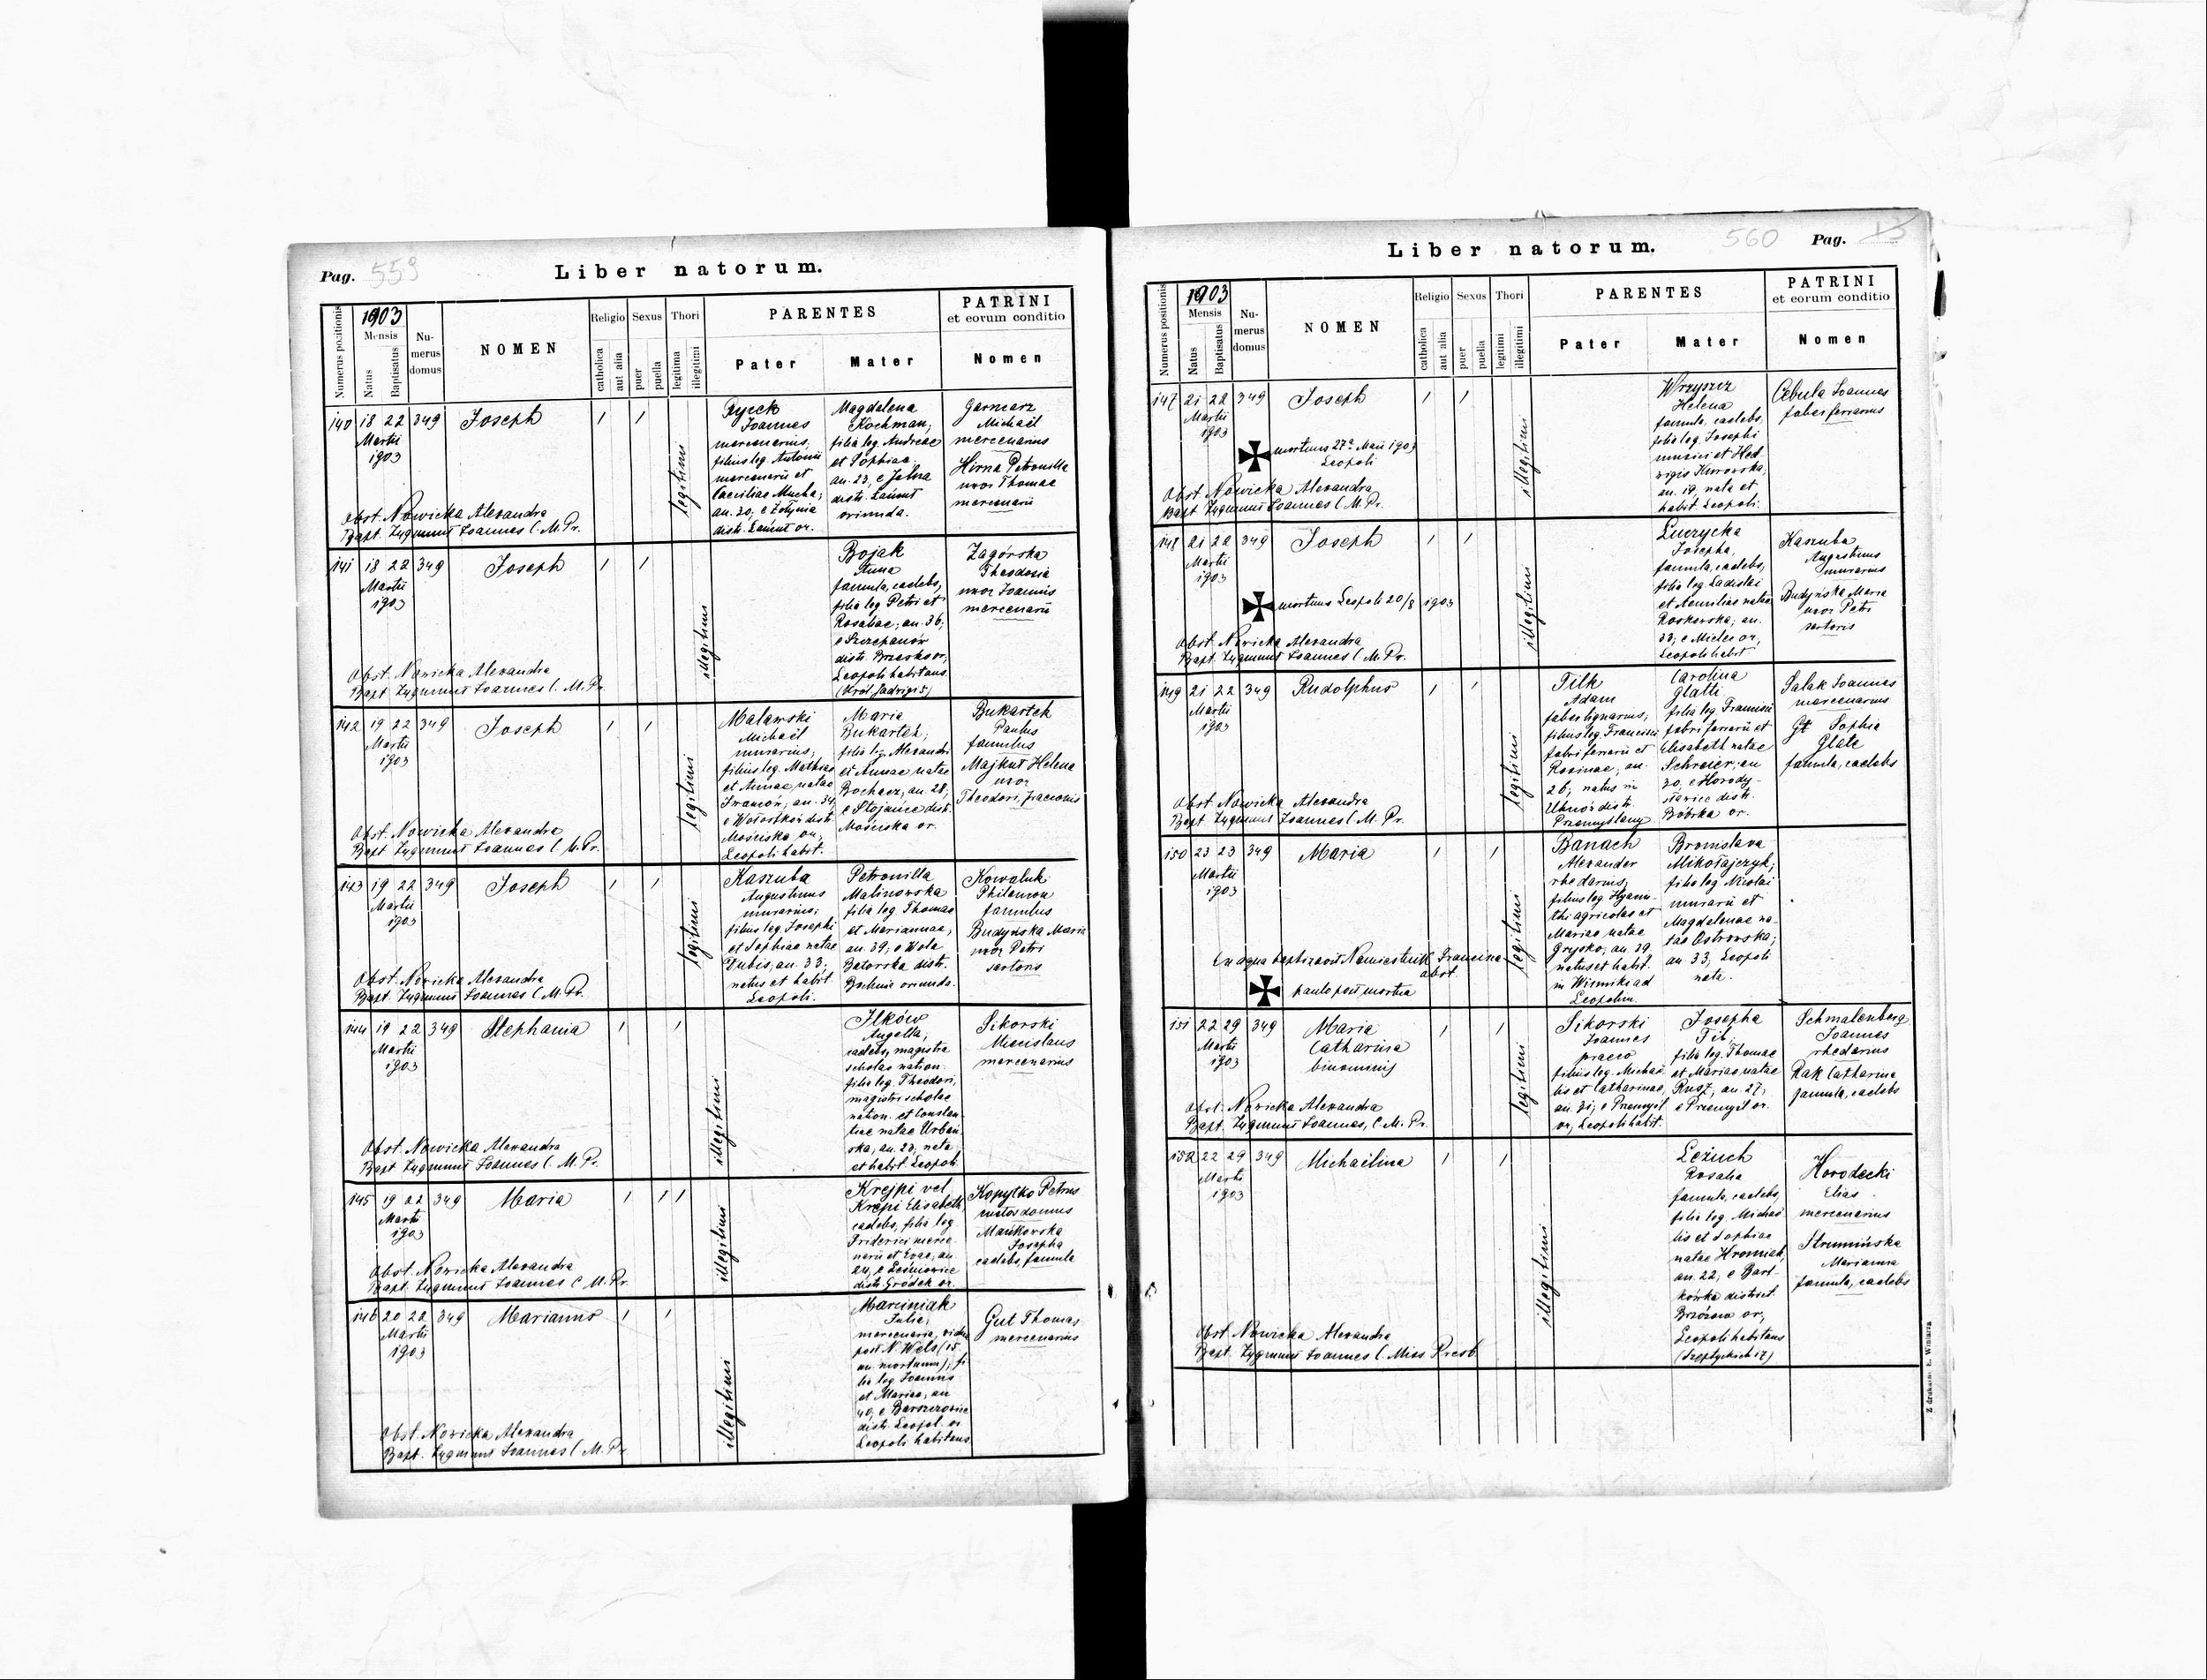 Pag. 559
Liber natorum.
Numerus positionis
1903
Mensis
Natus
Baptisatus
Numerus domus
NOMEN
Religio
catholica
aut alia
Sexus
puer
puella
Thori
legitima
illegitimi
PARENTES
Pater
Mater
PATRINI
et eorum conditio
Nomen
140 18 22 349 Joseph
Martii
1903
legitimi
Joannes
mercenarius,
filius leg. Antonii
mercenarii et
Caeciliae Mucha;
an. 30, e Żołynia
distr. Łańcut or.
Magdalena
Kochman,
filia leg. Andreae
et Sophiae
an. 23, e
distr. Łańcut
oriunda.
Garncarz
Michaël
mercenarius
Hirna Petronilla
uxor Thomae
mercenarii
Obst. Nowicka Alexandra
Bapt. Zygmunt Joannes C. M. Pr.
141 18 22 349 Joseph
Martii
1903
illegitimi
Bojak
Anna
famula, caelebs,
filia leg. Petri et
Rosaliae; an. 36,
e Szczepanów
distr. Brzesko or,
Leopoli habitans.
(Król Jadwigi 5)
Zagórska
Theodosia
uxor Joannis
mercenarii
Obst. Nowicka Alexandra
Bapt Zygmunt Joannes C. M. Pr.
142 19 22 349 Joseph
Martii
1903
legitimi
Malawski
Michaël
murarius,
filius leg. Mathiae
et Annae natae
an. 34,
distr.
Mościska or,
Leopoli habit.
Maria
Bukartek,
filia leg. Alexandri
et Annae natae
an. 28,
e Stojańce distr.
Mościska or.
Bukartek
Paulus
famulus
Majkut Helena
uxor
Theodori,
Obst. Nowicka Alexandra
Bapt. Zygmunt Joannes C. M. Pr.
143 19 22 349 Joseph
Martii
1903
legitimi
Kaszuba
Augustinus
murarius;
filius leg. Josephi
et Sophiae natae
Dubis, an. 33;
natus et habit.
Leopoli.
Petronilla
Malinowska
filia leg. Thomae
et Mariannae,
an. 39; e Wola
Batorska distr.
Bochnia oriunda.
Kowaluk
Philemon
famulus
Budyńska Maria
uxor Petri
sartoris
Obst. Nowicka Alexandra
Bapt. Zygmunt Joannes C. M. Pr.
144 19 22 349 Stephania
Martii
1903
illegitimi
Ilków
Angella,
caelebs, magistra
scholae nation.
filia leg. Theodori,
magistri scholae
nation. et Constantiae
natae Urbańska,
an. 23, nata
et habit. Leopoli
Sikorski
Miecislaus
mercenarius
Obst. Nowicka Alexandra
Bapt Zygmunt Joannes C. M. Pr.
145 19 22 349 Maria
Martii
1903
illegitimi
Krejpi vel
Krepi Elisabeth
caelebs, filia leg
Friderici mercenarii
et Evae, an.
e Leśniowice
distr. Gródek or.
Kopytko Petrus
custos domus
Mańkowska
Josepha
caelebs, famula
Obst. Nowicka Alexandra
Bapt. Zygmunt Joannes C. M. Pr.
146 20 22 349 Marianus
Martii
1903
illegitimi
Marciniak
Julia,
mercenaria, vidua
post N. Wels (15
an. mortuum), filia
leg. Joannis
et Mariae, an
40, e Barszczowice
distr. Leopol. or
Leopoli habitans
Gut Thomas
mercenarius
Obst. Nowicka Alexandra
Bapt. Zygmunt Joannes C. M. Pr.
Liber natorum.
560 Pag.
Numerus positionis
1903
Mensis
Natus
Baptisatus
Numerus domus
NOMEN
Religio
catholica
aut alia
Sexus
puer
puella
Thori
legitimi
illegitimi
PARENTES
Pater
Mater
PATRINI
et eorum conditio
Nomen
147 21 22 349 Joseph
Martii
1903
mortuus 27ª Maii 1903
Leopoli
illegitimi
Wrzyszcz
Helena
famula, caelebs,
filia leg. Josephi
musici et Hedvigis
Kurowska;
an. 19, nata et
habit. Leopoli.
Cebula Joannes
faber ferrarius
Obst. Nowicka Alexandra
Bapt Zygmunt Joannes C. M. Pr.
148 21 22 349 Joseph
Martii
1903
mortuus Leopoli 20/8 1903
illegitimi
Josepha,
famula, caelebs,
filia leg. Ladislai
et Aemiliae natae
an.
33, e Mielec or,
Leopoli habit
Kaszuba
Augustinus
murarius
Budyńska Maria
uxor Petri
sartoris
Obst. Nowicka Alexandra
Bapt. Zygmunt Joannes C. M. Pr.
149 21 22 349 Rudolphus
Martii
1903
legitimi
Filk
Adam
faber lignarius;
filius leg. Francisci
fabri ferrarii et
Rosinae; an.
26, natus in
distr.
Przemyślany
Carolina
Glatti
filia leg. Francisci
fabri ferrarii et
Elisabeth natae
Schreier; an
30, e Horodysławice
distr.
Bóbrka or.
Salak Joannes
mercenarius
Gt Sophia
Glate
famula, caelebs
Obst. Nowicka Alexandra
Bapt. Zygmunt Joannes C. M. Pr.
150 23 23 349 Maria
Martii
1903
Ex aqua baptizavit Francisca
obst.
paulo post mortua
legitimi
Banach
Alexander
rhedarius,
filius leg. Hyacinthi
agricolae et
Mariae natae
Grysko, an. 39,
natus et habit.
in Winniki ad
Leopolim.
Bronislava
Mikołajczyk;
filia leg. Nicolai
murarii et
Magdalenae natae
Ostrowska;
an 33, Leopoli
nata.
151 22 29 349 Maria
Martii
1903
Catharina
binominis
legitimi
Sikorski
Joannes
praeco
filius leg. Michaëlis
et Catharinae,
an. 31; e Przemyśl
or, Leopoli habit.
Josepha
Fil,
filia leg. Thomae
et Mariae natae
Rusz, an. 27;
e Przemyśl or.
Schmalenberg
Joannes
rhedarius
Rak Catharina
famula, caelebs
Obst. Nowicka Alexandra
Bapt. Zygmunt Joannes, C. M. Pr.
152 22 29 349 Michaëlina
Martii
1903
illegitimi
Leżuch
Rosalia
famula, caelebs,
filia leg. Michaëlis
et Sophiae
natae Hromiak,
an. 22; e Bartkówka
district.
Brzozów or,
Leopoli habitans
(Szeptyckich 17)
Horodecki
Elias
mercenarius
Strumińska
Marianna
famula, caelebs
Obst. Nowicka Alexandra
Bapt. Zygmunt Joannes C. Miss. Presb.
Z drukarni E. Winiarza